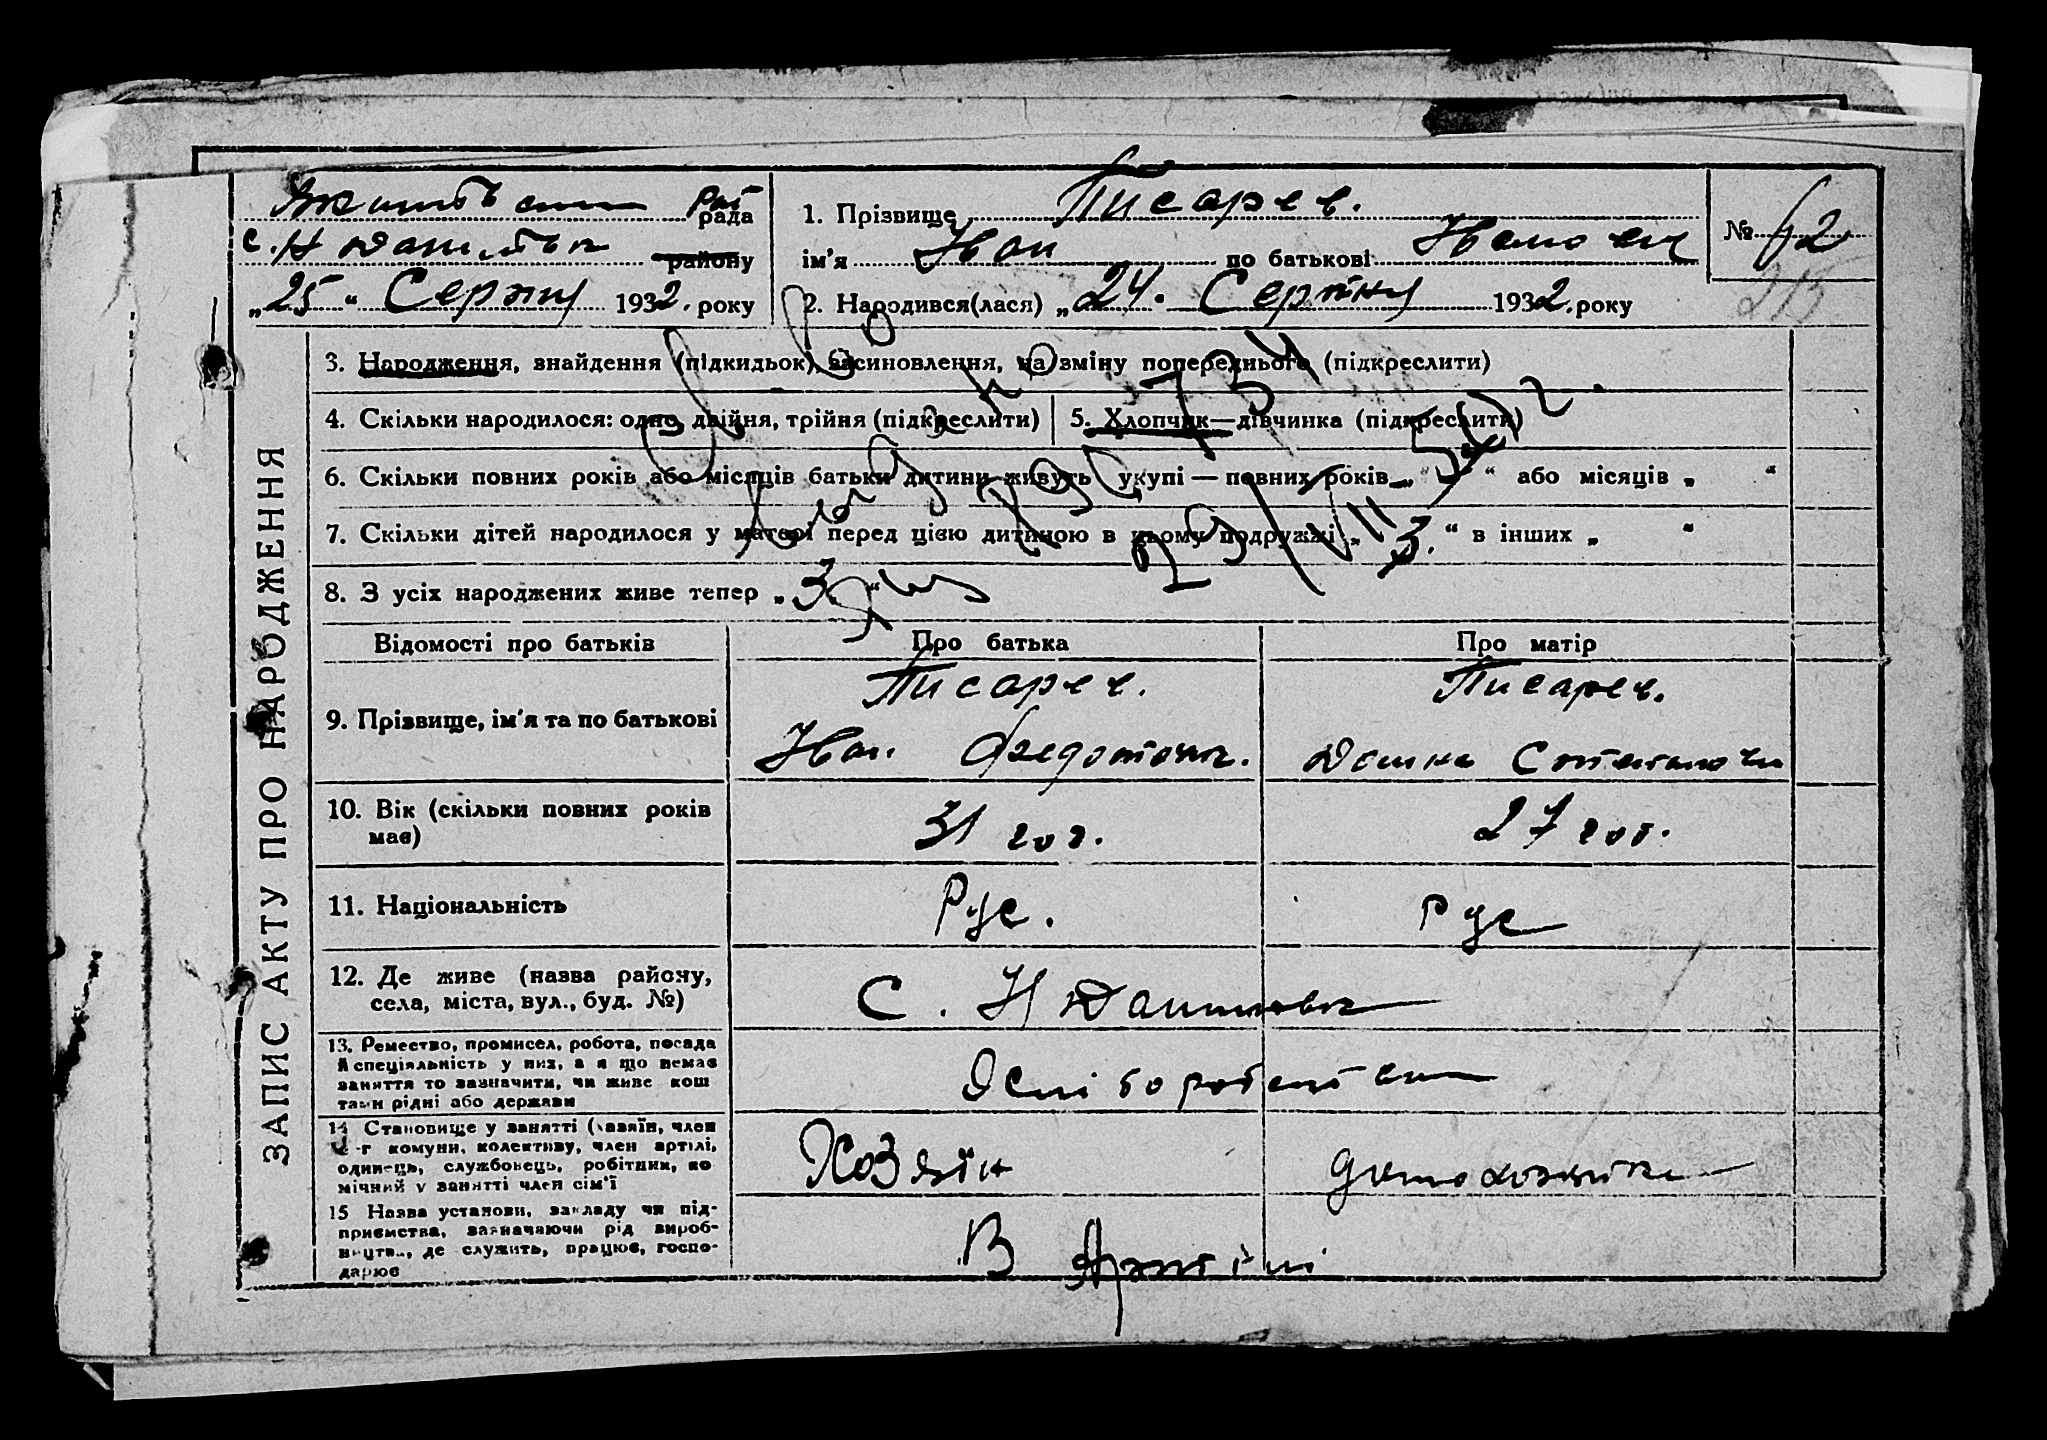 рада
с. Н Данилівк району
„25“ Серпня 1932. року
1. Прізвище Писарев.
ім'я Иван по батькові Иванович
2. Народився(лася) „24. Серпня 1932. року
№ 62
215
3. Народження, знайдення (підкидьок), засиновлення, на зміну попереднього (підкреслити)
4. Скільки народилося: одно, двійня, трійня (підкреслити)
5. Хлопчик—дівчинка (підкреслити)
6. Скільки повних років або місяців батьки дитини живуть укупі — повних років „ “ або місяців „ “
7. Скільки дітей народилося у матері перед цією дитиною в цьому подружжі „3.“ в інших „ “
8. З усіх народжених живе тепер „3“
Відомості про батьків
Про батька
Про матір
9. Прізвище, ім'я та по батькові
Писарев.
Иван Федотович.
Писарев.
10. Вік (скільки повних років
має)
31 год.
27 год.
11. Національність
Рус.
Рус
12. Де живе (назва району,
села, міста, вул., буд. №)
С. Н Данилівк
13. Ремество, промисел, робота, посада
й спеціяльність у них, а я що немає
заняття то зазначити, чи живе кош
тами рідні або держави
14 Становище у занятті (хазяїн, член
с-г комуни, колективу, член артілі,
одинець, службовець, робітник, по
мічний у занятті член сім'ї
Хозяїн
домохозяйка
15 Назва установи, закладу чи під-
приємства, зазначаючи рід вироб-
ництва, де служить, працює, госпо-
дарює
В Артілі
ЗАПИС АКТУ ПРО НАРОДЖЕННЯ